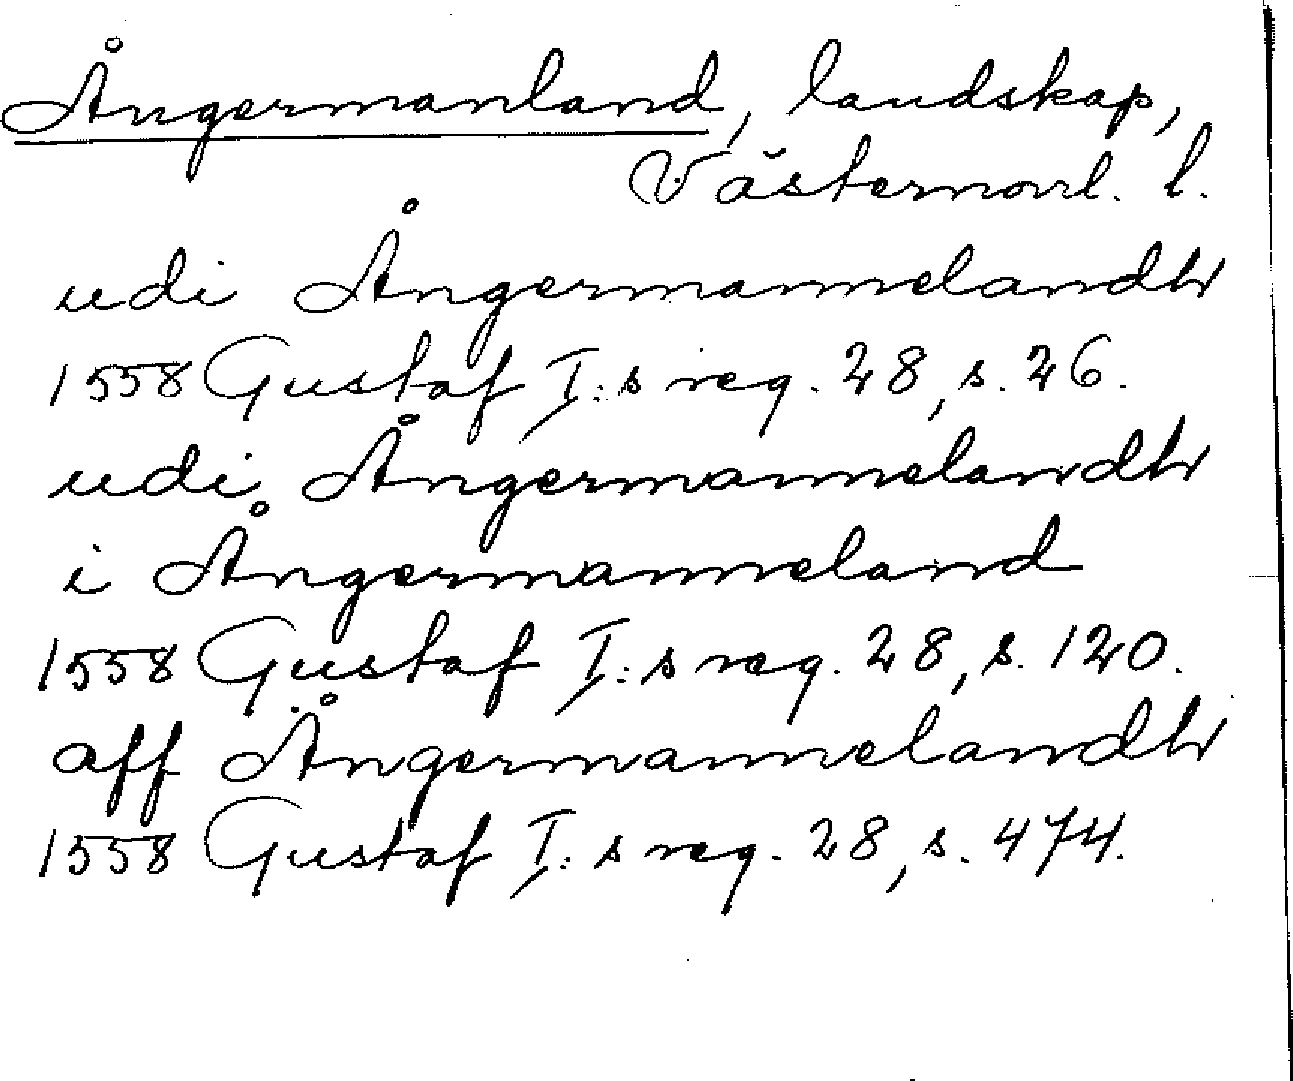 Ångermanland, landskap,
Västernorrl. l.
udi Ångermannelandh
1558 Gustaf I:s reg. 28, s. 26.
udi Ångermannelandh
i Ångermanneland
1558 Gustaf I:s reg. 28, s. 120.
aff Ångermannelandh
1558 Gustaf I:s reg. 28, s. 474.